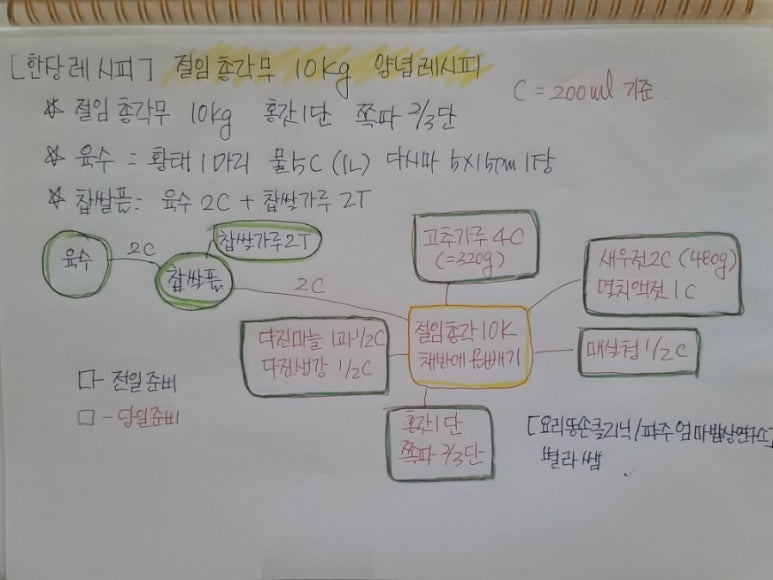 [한당레시피] 절임총각무 10Kg 양념레시피
C = 200ml 기준
☆ 절임총각무 10Kg 홍갓1단 쪽파 2/3단
☆ 육수 = 황태 1마리 물5C (1L) 다시마 5x15cm 1장
☆ 찹쌀풀: 육수 2C + 찹쌀가루 2T
육수
2C
찹쌀풀
찹쌀가루2T
2C
고추가루 4C
(=320g)
새우젓2C (480g)
멸치액젓 1C
다진마늘 1과 1/2C
다진생강 1/2C
절임총각 10K
채반에 물빼기
매실청 1/2C
홍갓1단
쪽파 2/3단
□- 전일준비
□ - 당일준비
[요리똥손클리닉/파주엄마밥상연구소]
벨라쌤